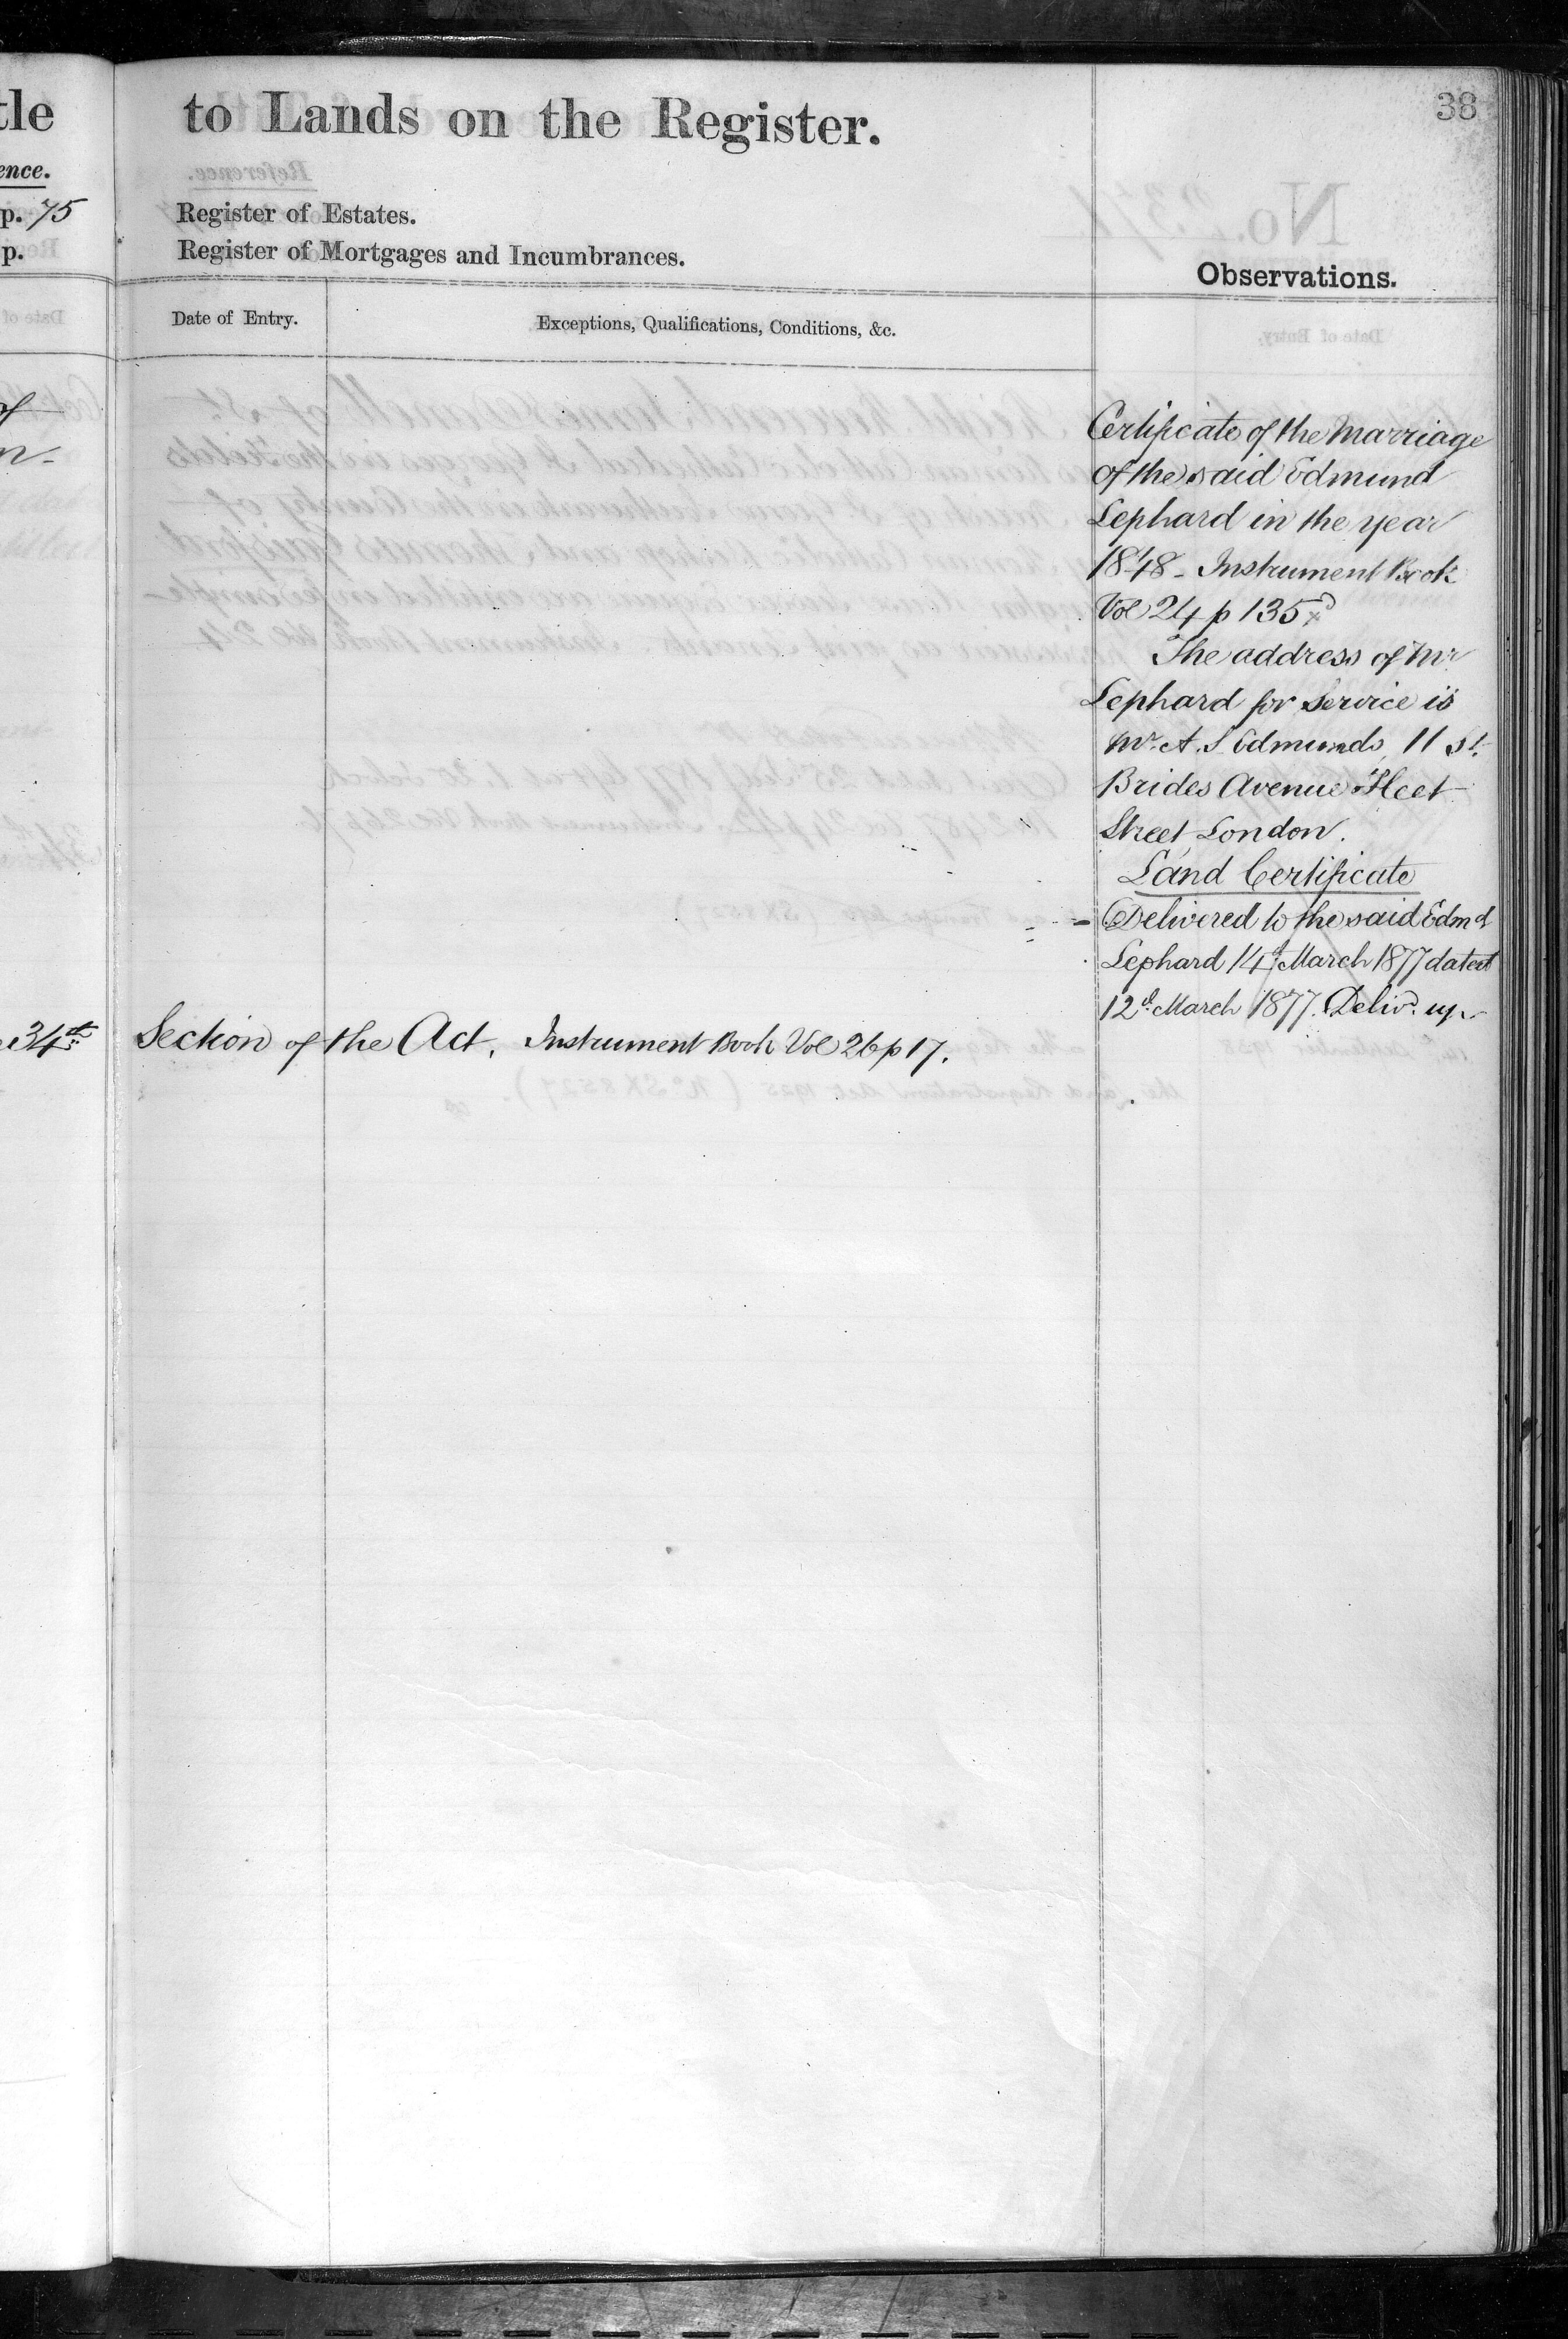 tle
ence.
p. 75
p.
of
34th
to Lands on the Register.
38
Register of Estates.
Register of Mortgages and Incumbrances.
Observations.
Date of Entry.
Exceptions, Qualifications, Conditions, &c.
Certificate of the Marriage
of the said Edmund
Lephard in the year
1848 - Instrument Book
Vol 24 p 135
The address of Mr
Lephard for Service is
Mr. A. S Edmunds, 11 St.
Brides Avenue Fleet
Street, London.
Land Certificate
Delivered to the said Edmd
Lephard 14th March 1877 dated
12th March 1877. Delivd. up.
Section of the Act. Instrument Book Vol 26 p 17.